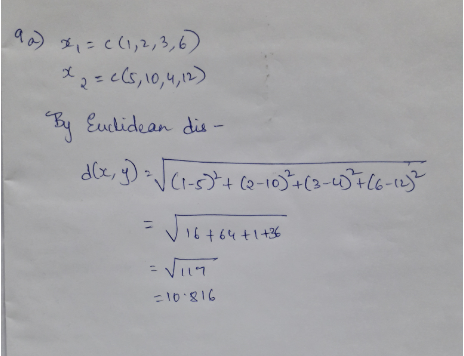 9a) x₁ = c(1,2,3,6)
x₂ = c(5,10,4,12)
By Euclidean dis -
d(x,y) = √(1-5)² + (2-10)² + (3-4)² + (6-12)²
= √16 + 64 + 1 + 36
= √117
= 10.816